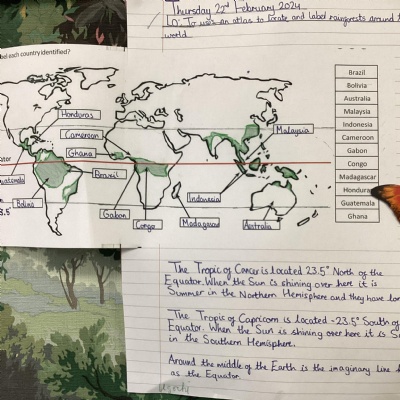 Thursday 22nd February 2024
L.O: To use an atlas to locate and label rainforests around t
world.
bel each country identified?
Honduras
Cameroon
Ghana
Malaysia
ator
uatemala
Brazil
Bolivia
Indonesia
Gabon
Congo
Madagascar
Australia
3.5°
Brazil
Bolivia
Australia
Malaysia
Indonesia
Cameroon
Gabon
Congo
Madagascar
Hondura
Guatemala
Ghana
The Tropic of Cancer is located 23.5° North of the
Equator. When the Sun is shining over here it is
Summer in the Northern Hemisphere and they have lon
The Tropic of Capricorn is located -23.5° South of
Equator. When the Sun is shining over here it is Su
in the Southern Hemisphere.
Around the middle of the Earth is the imaginary line
as the Equator.